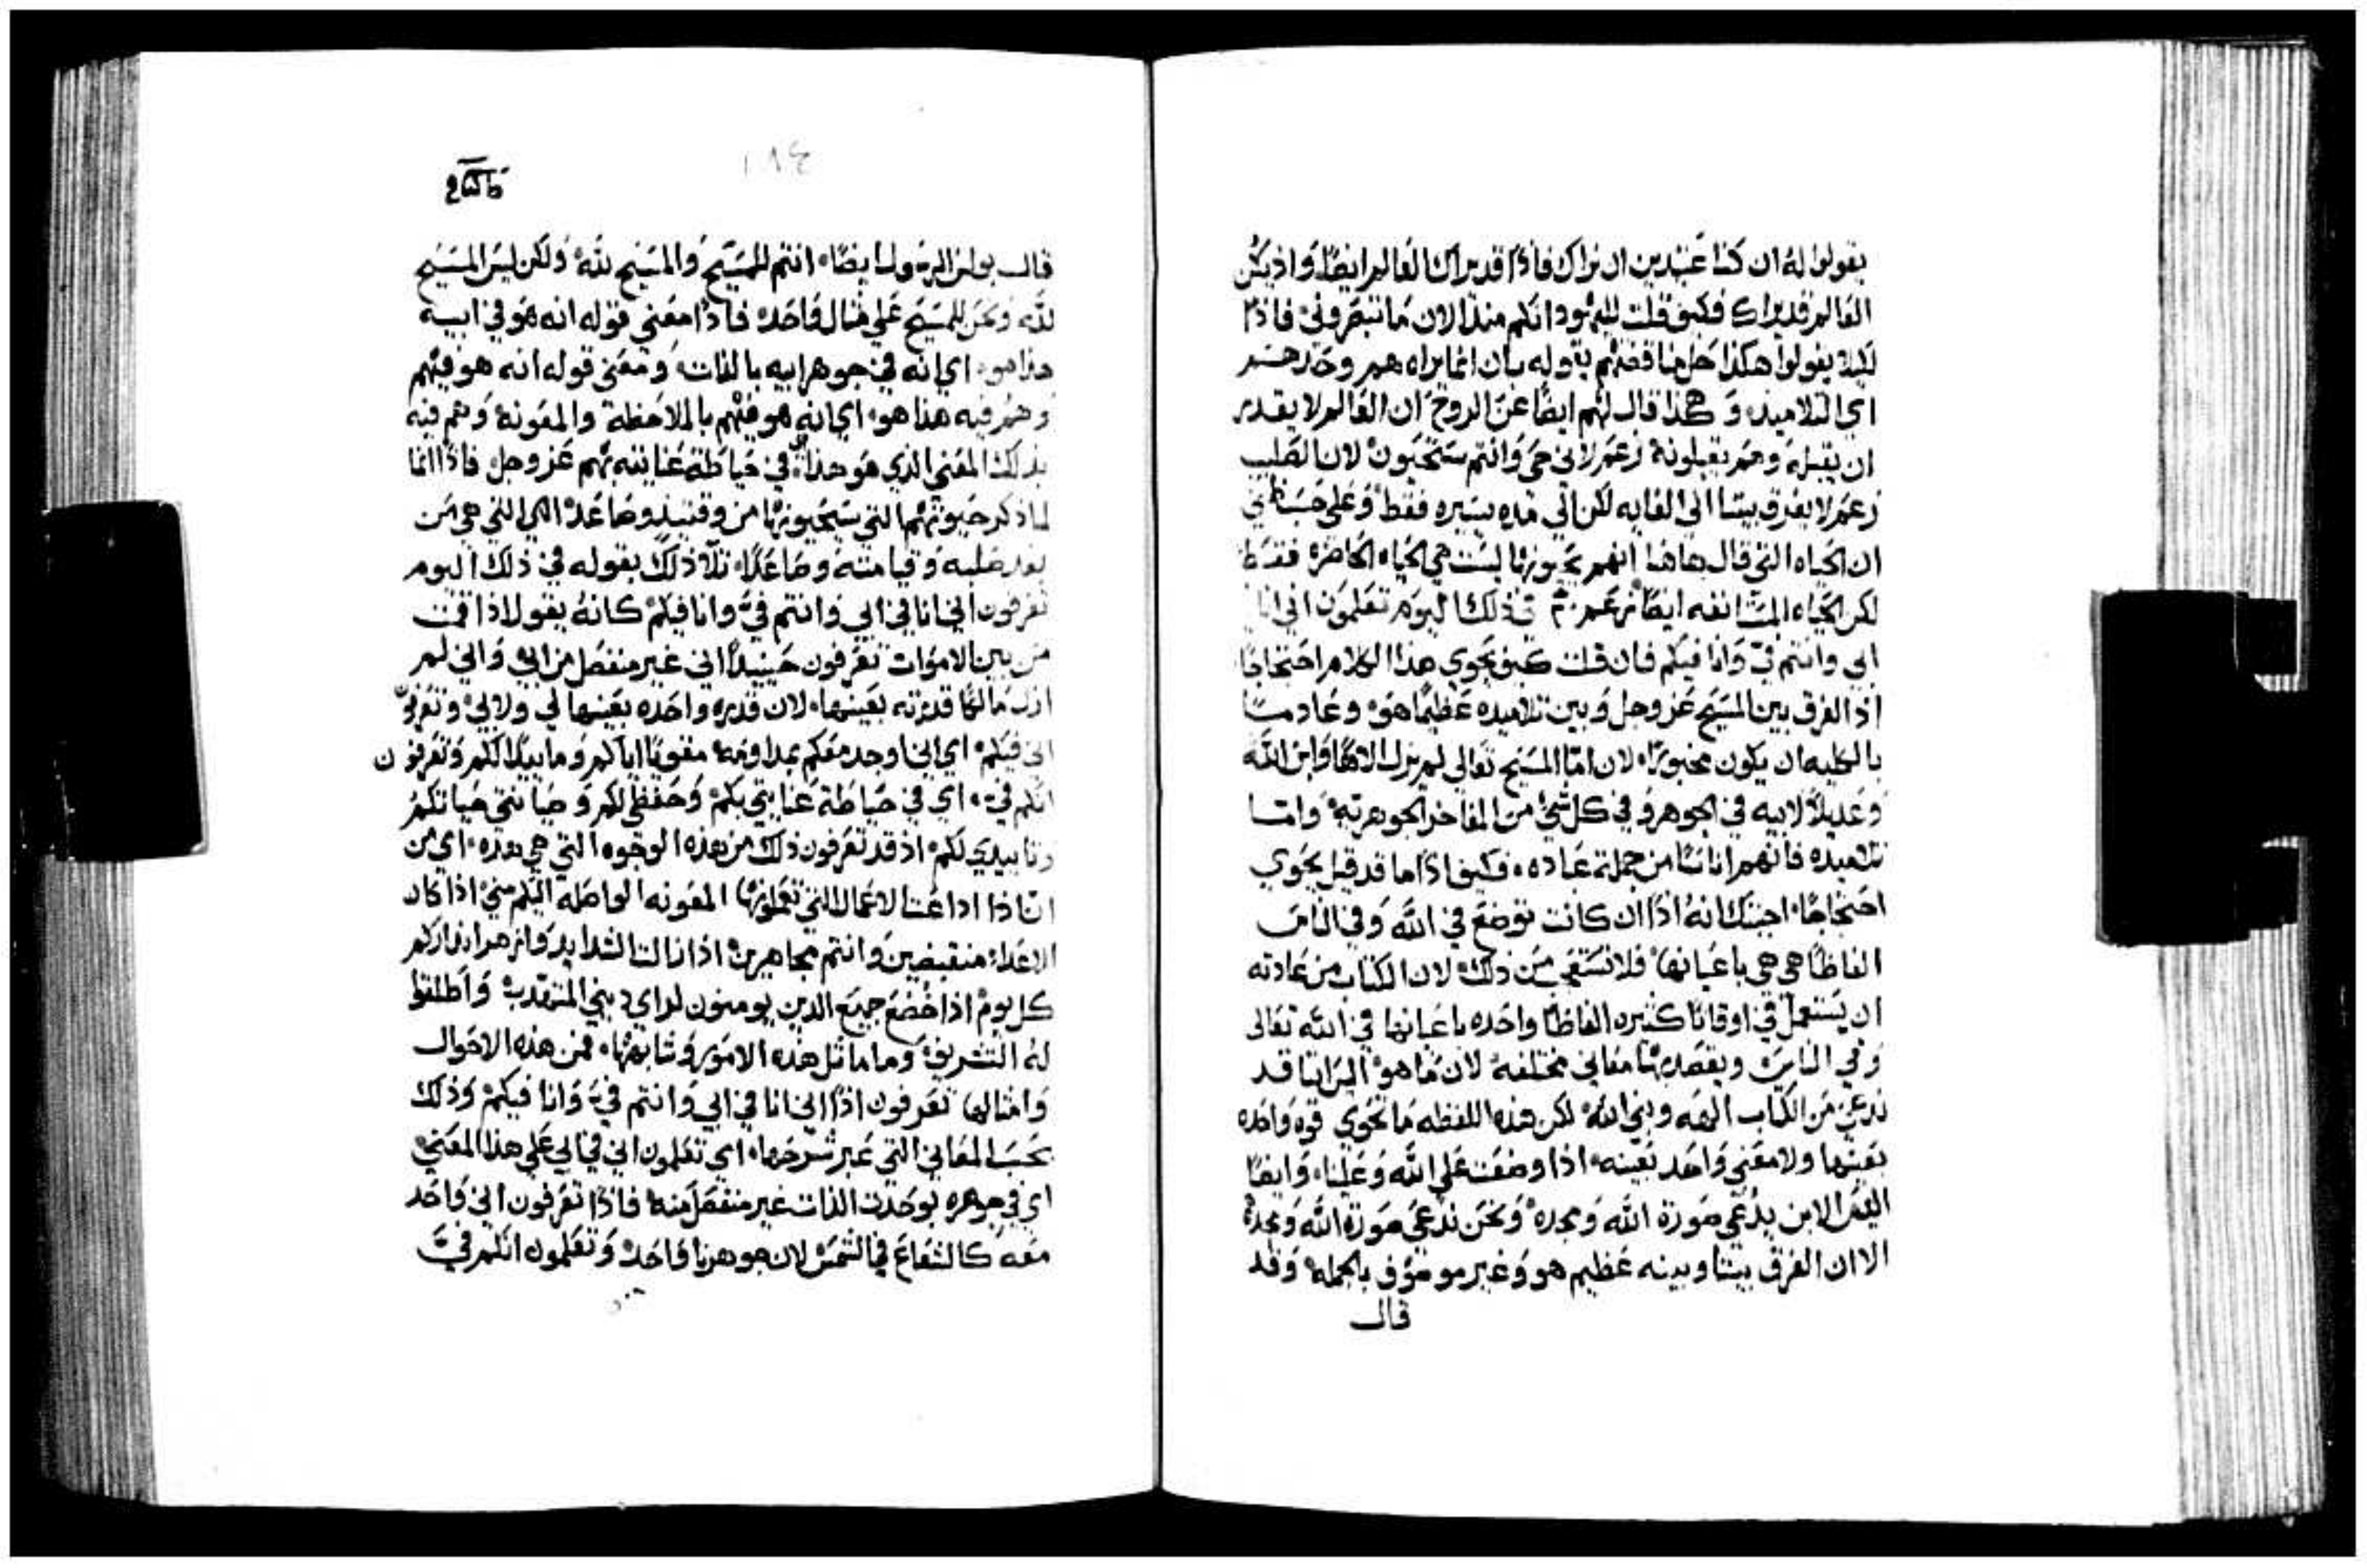 يقولوا له ان كنا عتيدين ان نراك فاذًا قد يراك العالم ايضًا واذ ليس
العالم قد يراك فكيف قلت لليهود انكم منذ الان ما تبصروني فاذًا
ليلا يقولوا هكذا حل مناقضتهم بقوله بان انما يراه هم وحدهم
اي التلاميذ وهكذا قال لهم ايضًا عن الروح ان العالم لا يقدر
ان يقبله وهم يقبلونه زعم لاني حي وانتم ستحيون لان الصليب
زعم لا يفرق بيننا الي الغايه لكن الي مده يسيره فقط وعلي حسب ظني
ان الحياه التي قال هاهنا انهم يحيونها ليست هي الحياه الحاضره فقط
لكن الحياه المستانفه ايضًا زعم في ذلك اليوم تعلمون اني انا
ابي وانتم في وانا فيكم فان قلت كيف يحوي هذا الكلام احتجاجًا
اذ الفرق بين المسيح عز وجل وبين تلاميذه عظيمًا هو وعادمًا
بالكليه ان يكون مخبورًا لان امّا المسيح تعالي لم يزل الاهًا وابن الله
وعديلًا لابيه في الجوهر وفي كل شي من المفاخر الجوهريه وامّا
تلاميذه فانهم اناسًا من جملة عباده فكيف اذًا ما قد قيل يحوي
احتجاجًا اجبتك انه اذًا ان كانت توضع في الله وفي الناس
الفاظًا هي هي باعيانها فلا تستعفي من ذلك لان الكتاب من عادته
ان يستعمل في اوقاتًا كثيره الفاظًا واحده باعيانها في الله تعالي
وفي الناس ويقصد بها معاني مختلفه لان ها هو البرايا قد
ندعي من الكتاب الهه وبني الله لكن هذه اللفظه ما تحوي قوه واحده
بعينها ولا معني واحد بعينه اذا وضعت علي الله وعلينا وايضًا
الابن يدعي صورة الله ومجده ونحن ندعي صورة الله ومجده
الا ان الفرق بيننا وبينه عظيم هو وغير موصوف بالجمله وقد
قال
١٨٤
قال بولس الرسول ايضًا انتم للمسيح والمسيح لله ولكن ليس المسيح
لله ونحن للمسيح علي مثال واحد فاذًا معني قوله انه هو في ابيه
هذا هو اي انه في جوهر ابيه بالذات ومعني قوله انه هو فيهم
وهم فيه هذا هو اي انه هو فيهم بالملاحظة والمعونة وهم فيه
بذلك المعني الذي هو هذا في حياطة عنايته بهم عز وجل فاذًا انما
لما ذكر حيوتهم التي سيحيونها من وقتيذ وصاعدًا التي هي من
بعد صلبه وقيامته وصاعدًا تلا ذلك بقوله في ذلك اليوم
تعرفون اني انا في ابي وانتم في وانا فيكم كانه يقول اذا قمت
من بين الاموات تعرفون حينيذًا اني غير منفصل من ابي واني لم
ازل مالكًا قدرته بعينها لان قدره واحده بعينها لي ولابي وتعرفون
اني فيكم اي اني اوجد معكم بمداومه مقويًا اياكم ومايدًا لكم وتعرفون
انكم في اي في حياطة عنايتي بكم وحفظي لكم وصيانتي حياتكم
وتاييدي لكم اذ قد تعرفون ذلك من هذه الوجوه التي هي هذه اي من
اذا اذاعت الاعمال التي تعملونها المعونه الواصلة اليكم مني اذا كان
الاعداء منقبضين وانتم مجاهرين اذا زالت الشدايد وازهر انذاركم
كل يوم اذا خضع جميع الذين يومنون لراي ديني المتقدم واطلقوا
له التشريف وما ماثل هذه الامور وشابهها فمن هذه الاحوال
وامثالها تعرفون اذًا اني انا في ابي وانتم في وانا فيكم وذلك
بحسب المعاني التي عبر شرحها اي تعلمون اني في ابي علي هذا المعني
اي في جوهره بوحدت الذات غير منفصل منه فاذًا تعرفون اني واحد
معه كالشعاع في الشمس لان جوهرنا واحد وتعلمون انكم في